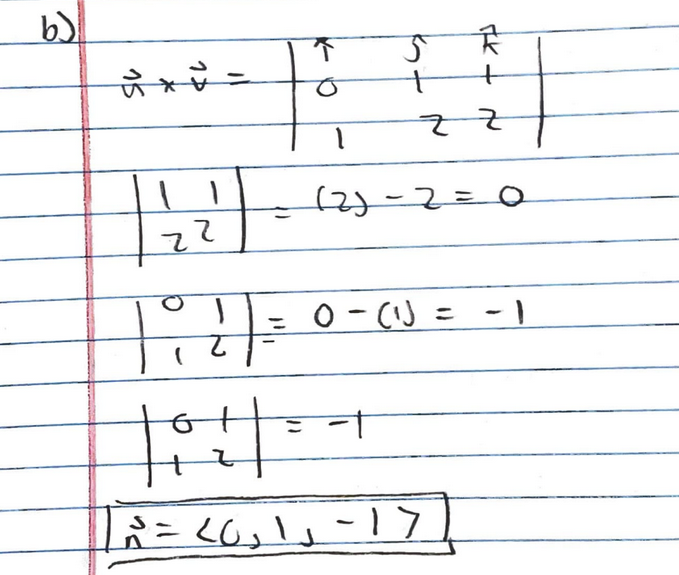 b)
î ĵ k̂
u⃗ × v⃗ = | 0 1 1 |
1 2 2
| 1 1 |
| 2 2 | = (2) - 2 = 0
| 0 1 |
| 1 2 | = 0 - (1) = -1
| 0 1 |
| 1 2 | = -1
n⃗ = <0, 1, -1>